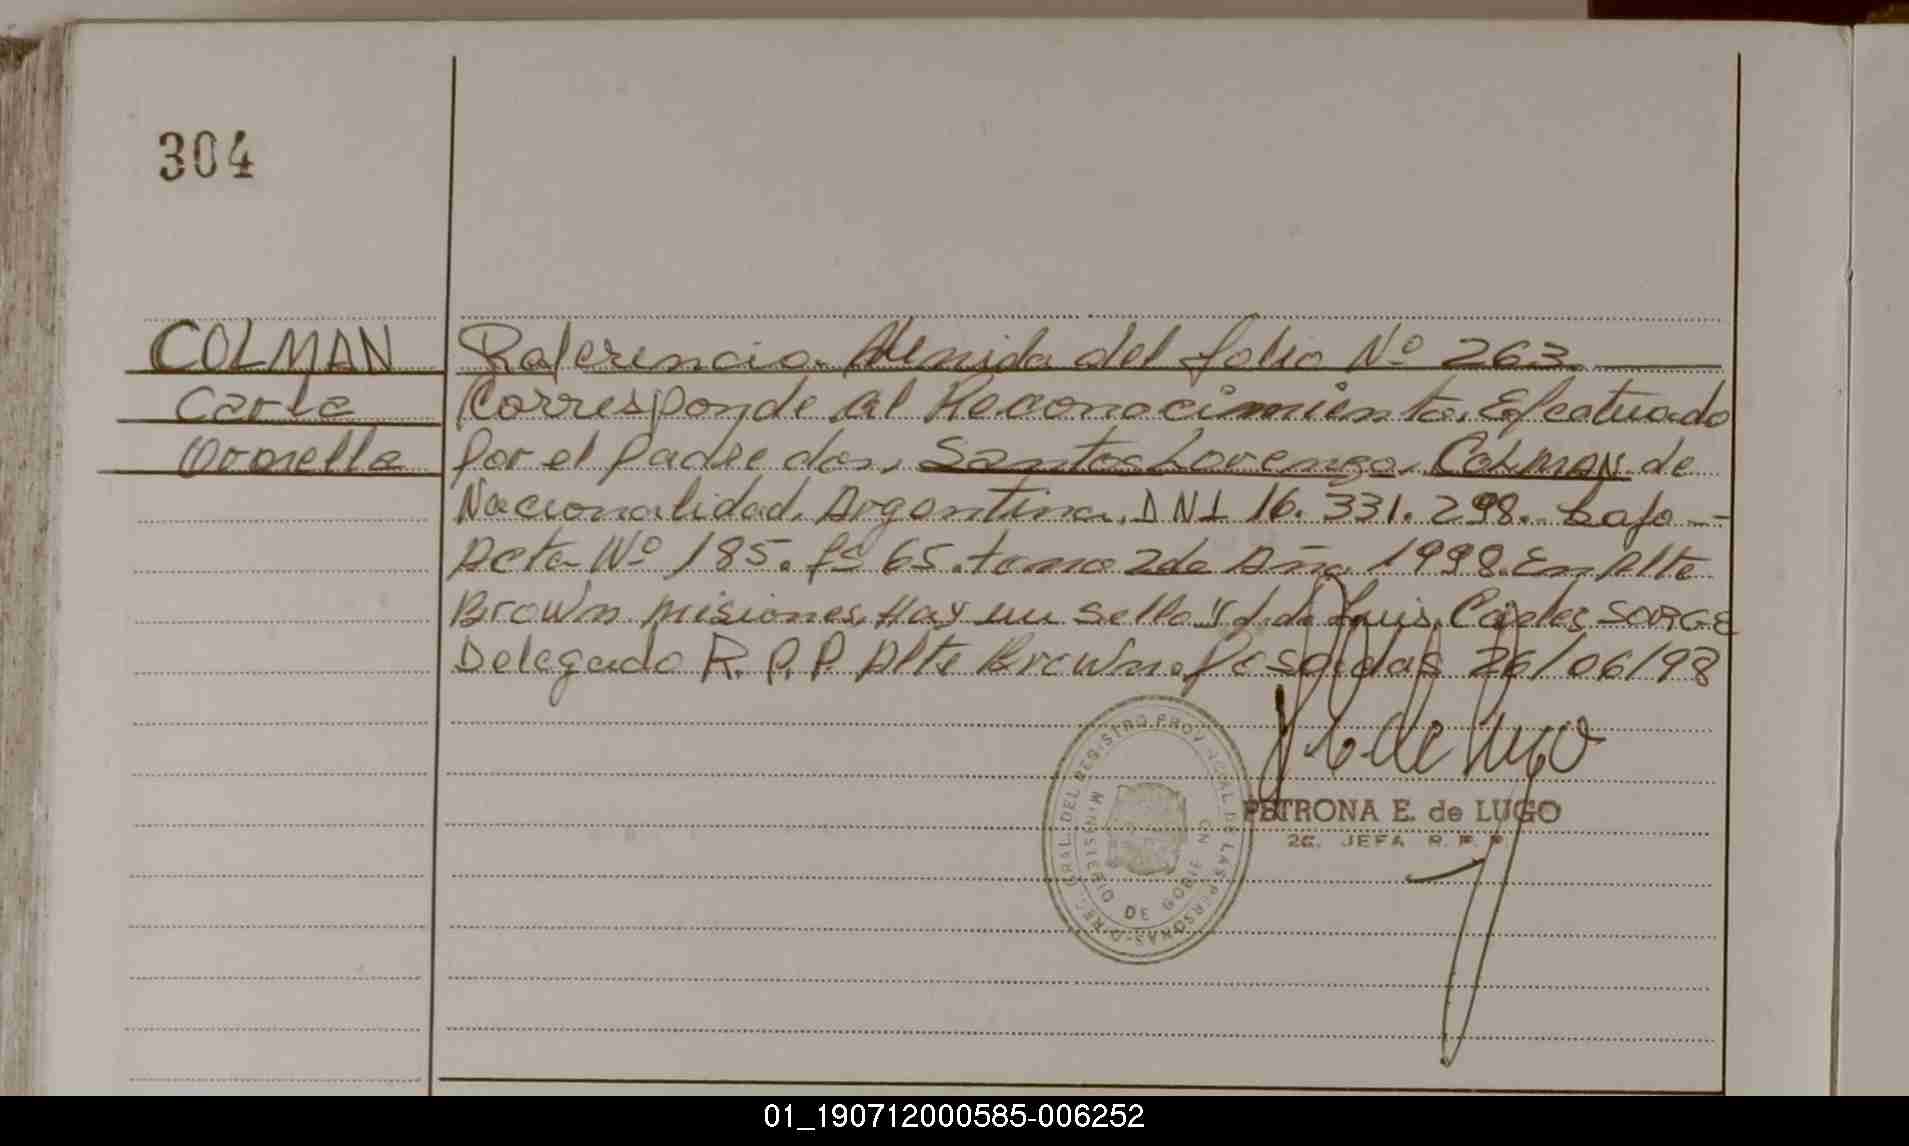 304
COLMAN
Carla
Ornella
Referencia Venida del folio Nº 263.
Corresponde al Reconocimiento. Efectuado
por el padre don, Santos Lorenzo, COLMAN de
Nacionalidad, Argentina. DNI 16.331.298. bajo -
Acta Nº 185. fs 65. tomo 2do Año 1998. En Alte
Brown Misiones. Hay un sello y fdo Luis Carlos SORGE
Delegado R.P.P. Alte Brown. Posadas 26/06/98
P E de Lugo
PETRONA E. de LUGO
2G. JEFA R. P. P.
DIREC. GRAL. DEL REGISTRO PROVINCIAL DE LAS PERSONAS
MINISTERIO DE GOBIERNO
01_190712000585-006252